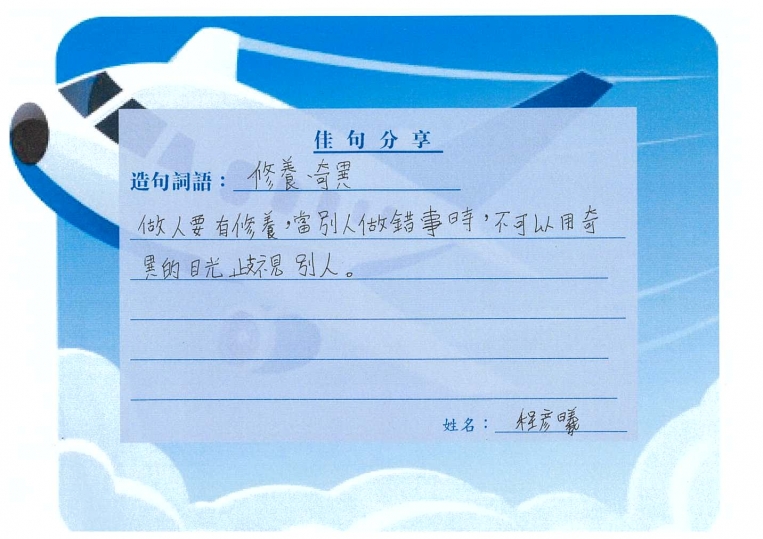 佳句分享
造句詞語：修養、奇異
做人要有修養，當別人做錯事時，不可以用奇
異的目光歧視別人。
姓名：程彥曦